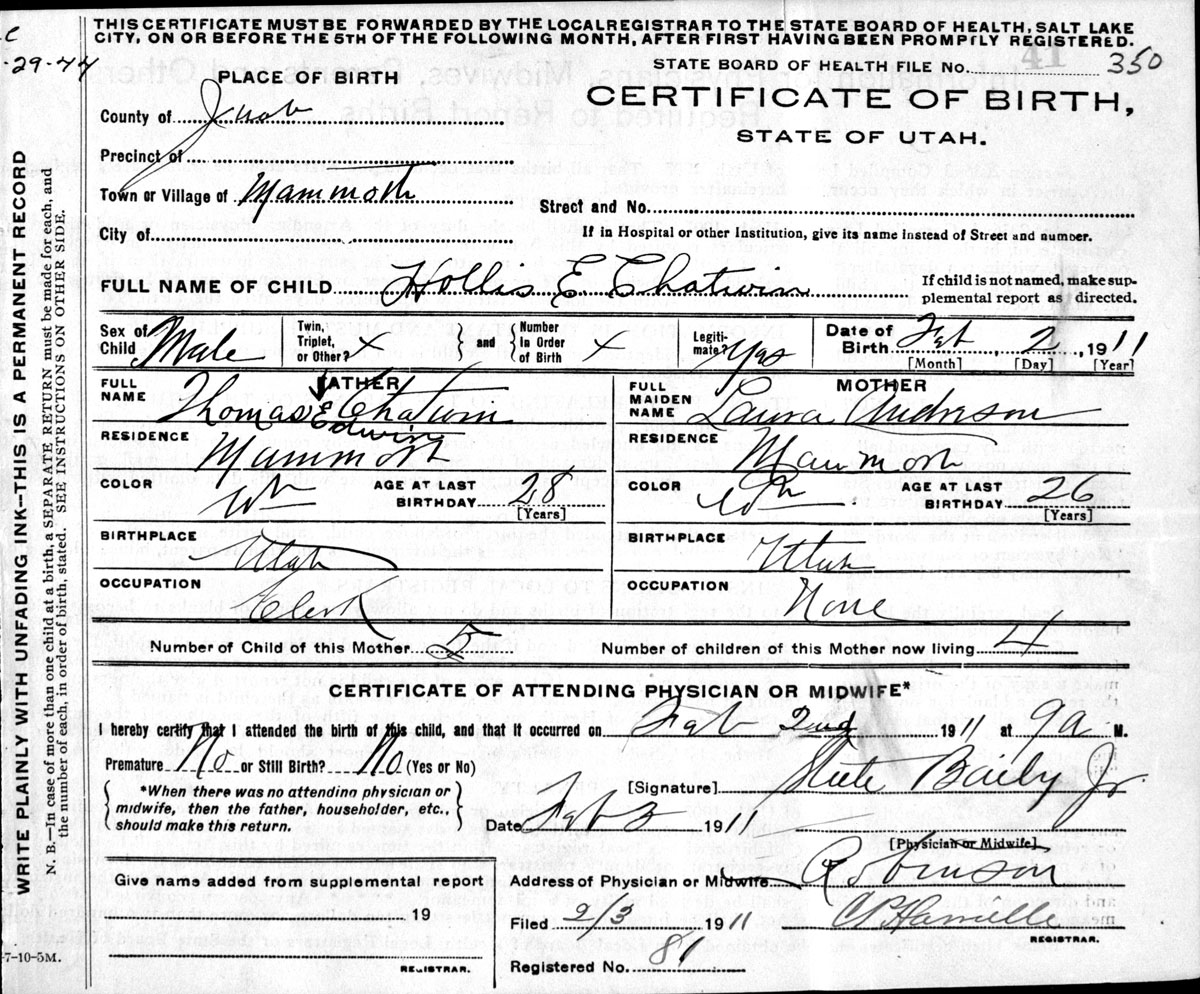 THIS CERTIFICATE MUST BE FORWARDED BY THE LOCAL REGISTRAR TO THE STATE BOARD OF HEALTH, SALT LAKE
CITY, ON OR BEFORE THE 5TH OF THE FOLLOWING MONTH, AFTER FIRST HAVING BEEN PROMPTLY REGISTERED.
-29-44
PLACE OF BIRTH
STATE BOARD OF HEALTH FILE No. 41 350
County of Juab
CERTIFICATE OF BIRTH,
STATE OF UTAH.
Precinct of
Town or Village of Mammoth
Street and No.
City of
If in Hospital or other Institution, give its name instead of Street and number.
FULL NAME OF CHILD Hollis E Chatwin
If child is not named, make sup-
plemental report as directed.
Sex of Child Male
Twin, Triplet, or Other? x
and
Number In Order of Birth x
Legiti-mate? Yes
Date of Birth Feb 2, 1911
[Month] [Day] [Year]
FATHER
FULL NAME Thomas E Chatwin
Edwin
RESIDENCE Mammoth
COLOR Wh AGE AT LAST BIRTHDAY 28
[Years]
BIRTHPLACE Utah
OCCUPATION Clerk
MOTHER
FULL MAIDEN NAME Laura Anderson
RESIDENCE Mammoth
COLOR Wh AGE AT LAST BIRTHDAY 26
[Years]
BIRTHPLACE Utah
OCCUPATION None
Number of Child of this Mother 5 Number of children of this Mother now living 4
CERTIFICATE OF ATTENDING PHYSICIAN OR MIDWIFE*
I hereby certify that I attended the birth of this child, and that it occurred on Feb 2nd 1911 at 9a M.
Premature No or Still Birth? No (Yes or No)
[Signature] Steele Baily Jr
*When there was no attending physician or
midwife, then the father, householder, etc.,
should make this return.
Date Feb 3 1911
[Physician or Midwife]
Give name added from supplemental report
Address of Physician or Midwife Robinson
19
Filed 2/3 1911
REGISTRAR.
REGISTRAR.
Registered No. 81
-7-10-5M.
WRITE PLAINLY WITH UNFADING INK—THIS IS A PERMANENT RECORD
N. B.—In case of more than one child at a birth, a SEPARATE RETURN must be made for each, and
the number of each, in order of birth, stated. SEE INSTRUCTIONS ON OTHER SIDE.